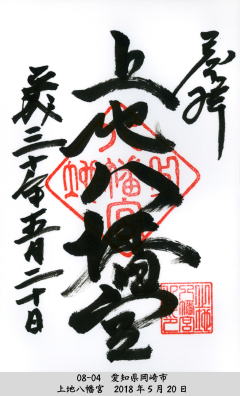 奉拝
上地八幡宮
平成三十年五月二十日
上地
八幡宮
08-04 愛知県岡崎市
上地八幡宮 2018年5月20日